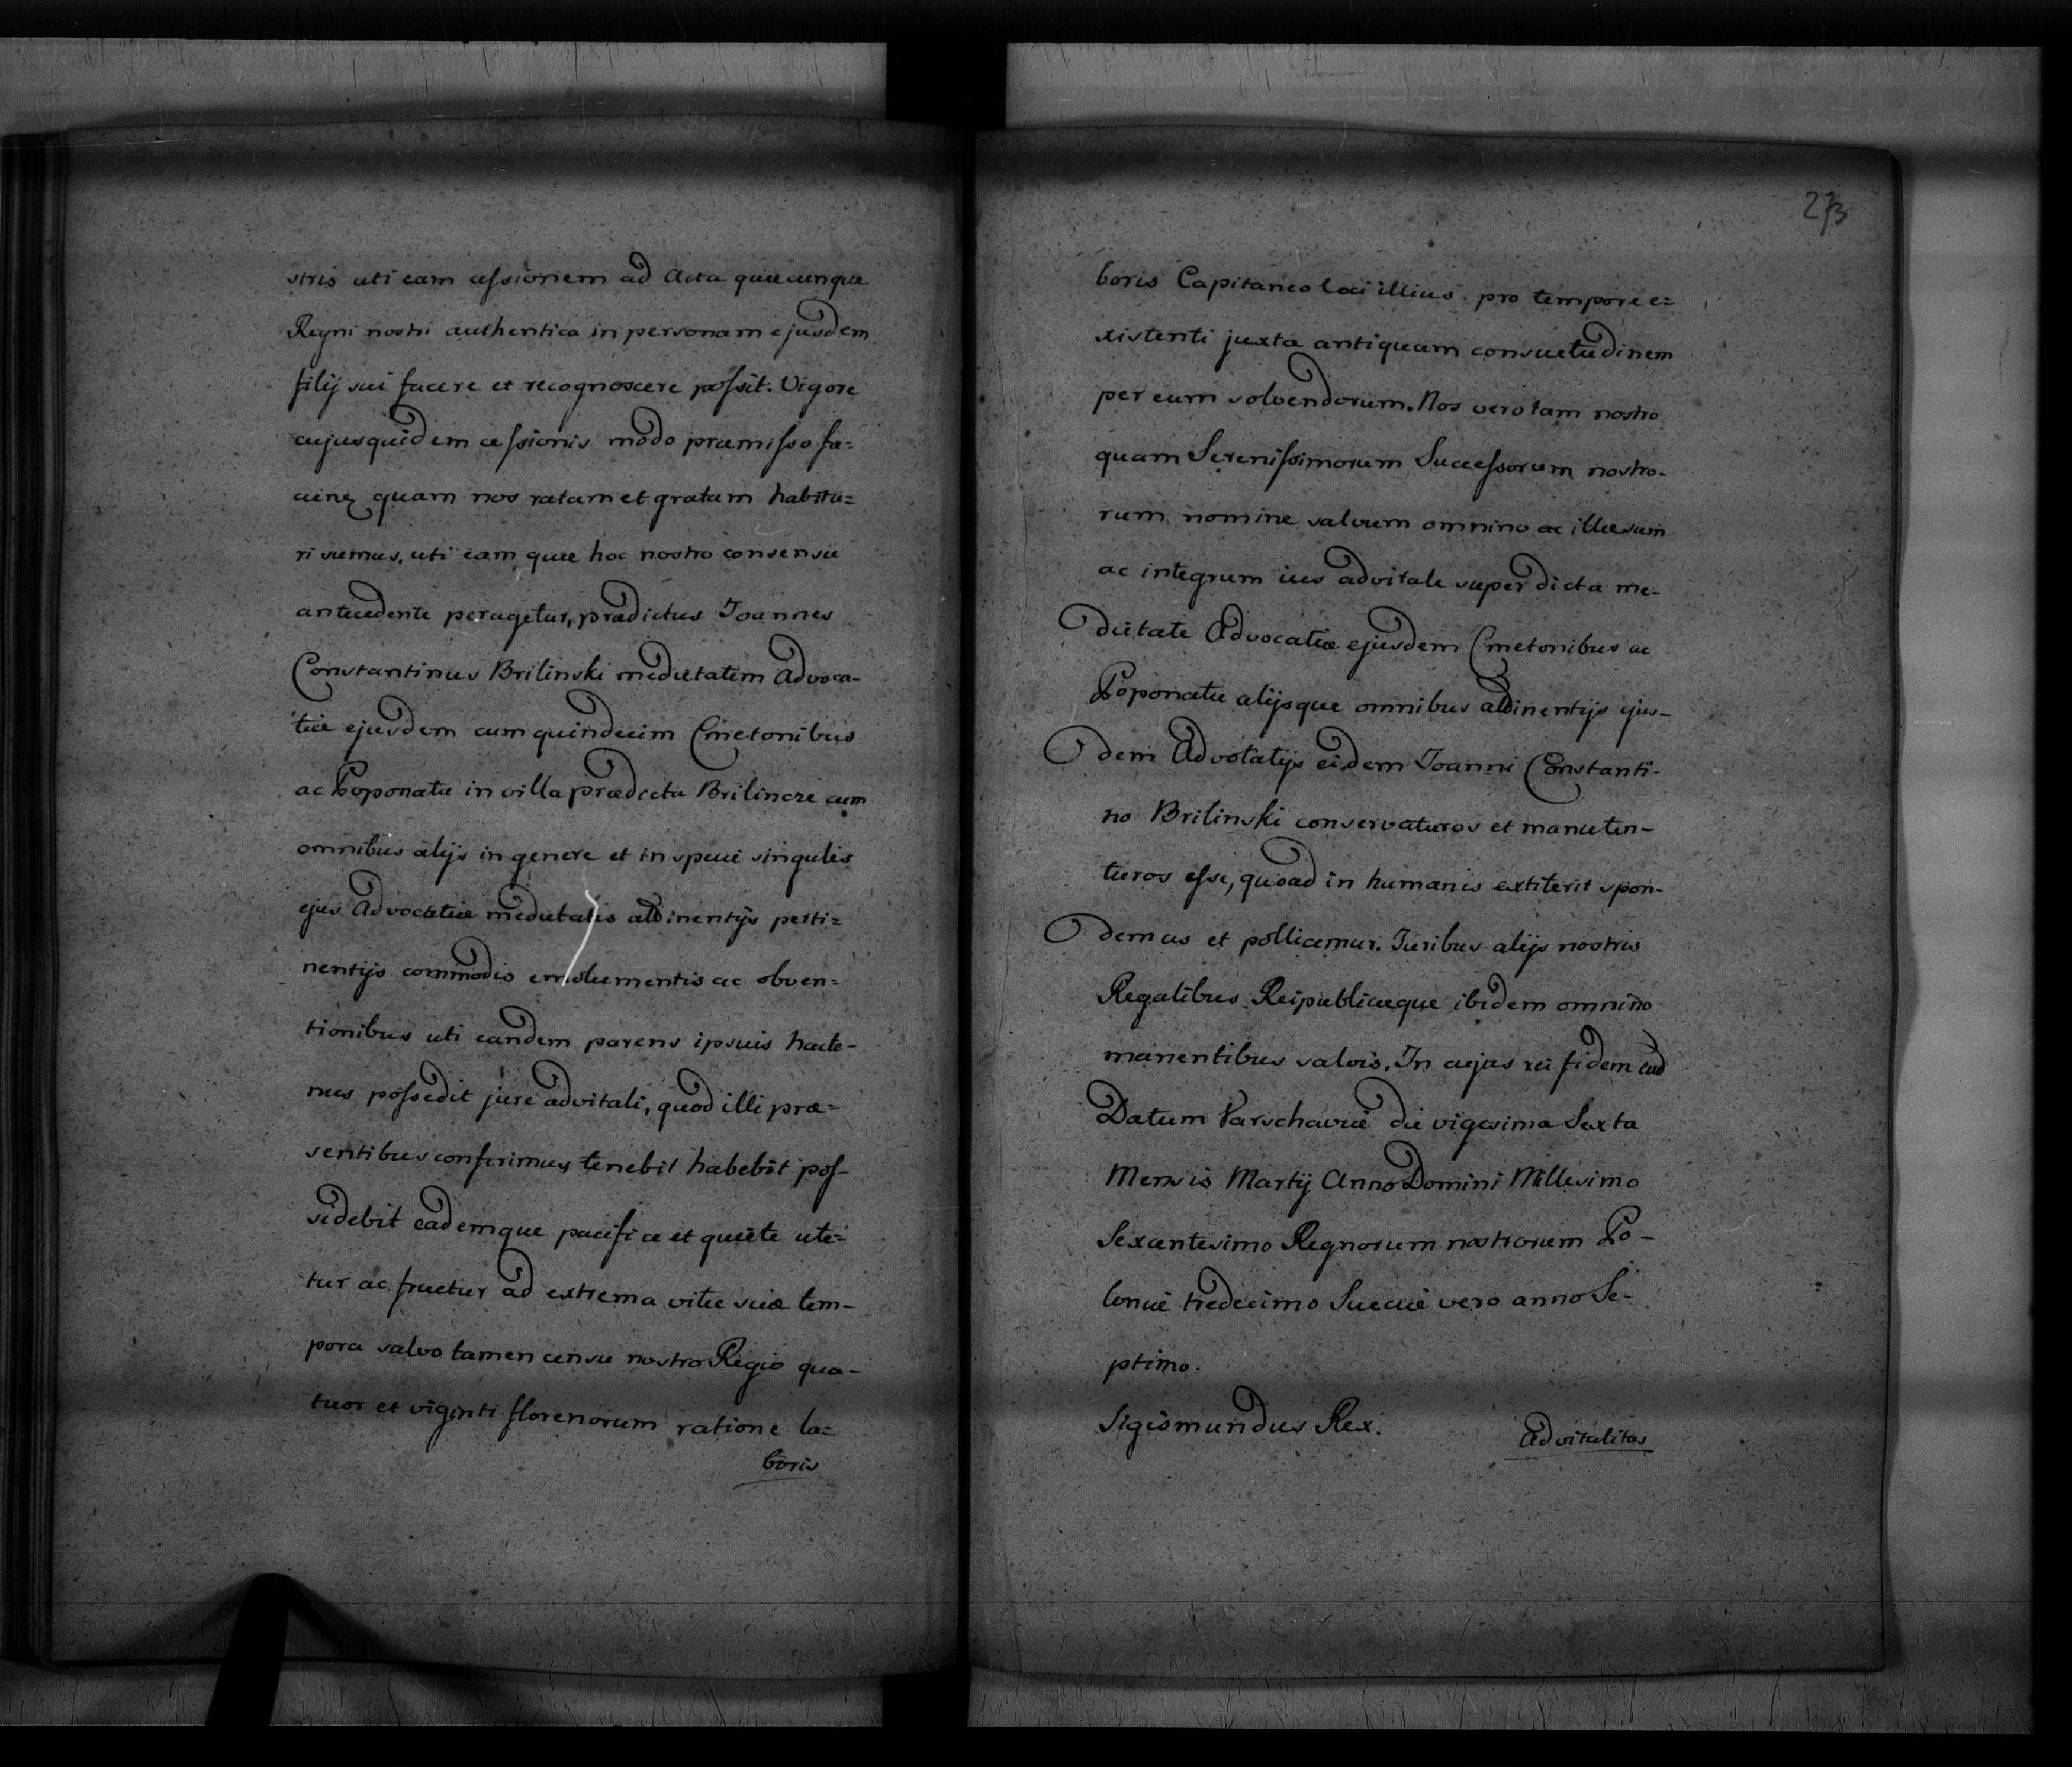 stris uti eam cessionem ad Acta quaecunque
Regni nostri authentica in personam ejusdem
filij sui facere et recognoscere possit. Vigore
cujusquidem cessionis modo praemisso fa=
ciend quam nos ratam et gratam habitu=
ri sumus, uti eam, quae hoc nostro consensu
antecedente peragetur, praedictus Joannes
Constantinus Brilinski medietatem Advoca-
tiae ejusdem cum quindecim Cmetonibus
ac Poponatu in villa praedicta Brilincze cum
omnibus alijs in genere et in specie singulis
ejus Advocatiae medietatis attinentijs perti=
nentijs commodis emolumentis ac obven=
tionibus uti eandem parens ipsius hacte-
nus possedit jure advitali, quod illi prae-
sentibus conferimus, tenebit habebit pos-
sidebit eademque pacifice et quiete ute=
tur ac fruetur ad extrema vitae suae tem-
pora salvo tamen censu nostro Regio qua-
tuor et viginti florenorum ratione la=
boris
273
boris Capitaneo loci illius pro tempore e=
xistenti juxta antiquam consuetudinem
per eum solvendorum. Nos vero tam nostro
quam Serenissimorum Successorum nostro-
rum nomine salvum omnino ac illaesum
ac integrum ius advitale super dicta me-
dietate Advocatiae ejusdem Cmetonibus ac
Poponatu alijsque omnibus attinentijs ejus-
dem Advotatijs eidem Joanni Constanti-
no Brilinski conservaturos et manuten-
turos esse, quoad in humanis extiterit spon-
demus et pollicemur. Juribus alijs nostris
Regalibus Reipublicaeque ibidem omnino
manentibus salvis. In cujus rei fidem
Datum Varschaviae die vigesima Sexta
Mensis Martij Anno Domini Millesimo
Sexcentesimo Regnorum nostrorum Po-
loniae tredecimo Sueciae vero anno Se-
ptimo.
Sigismundus Rex.
Advitalitas